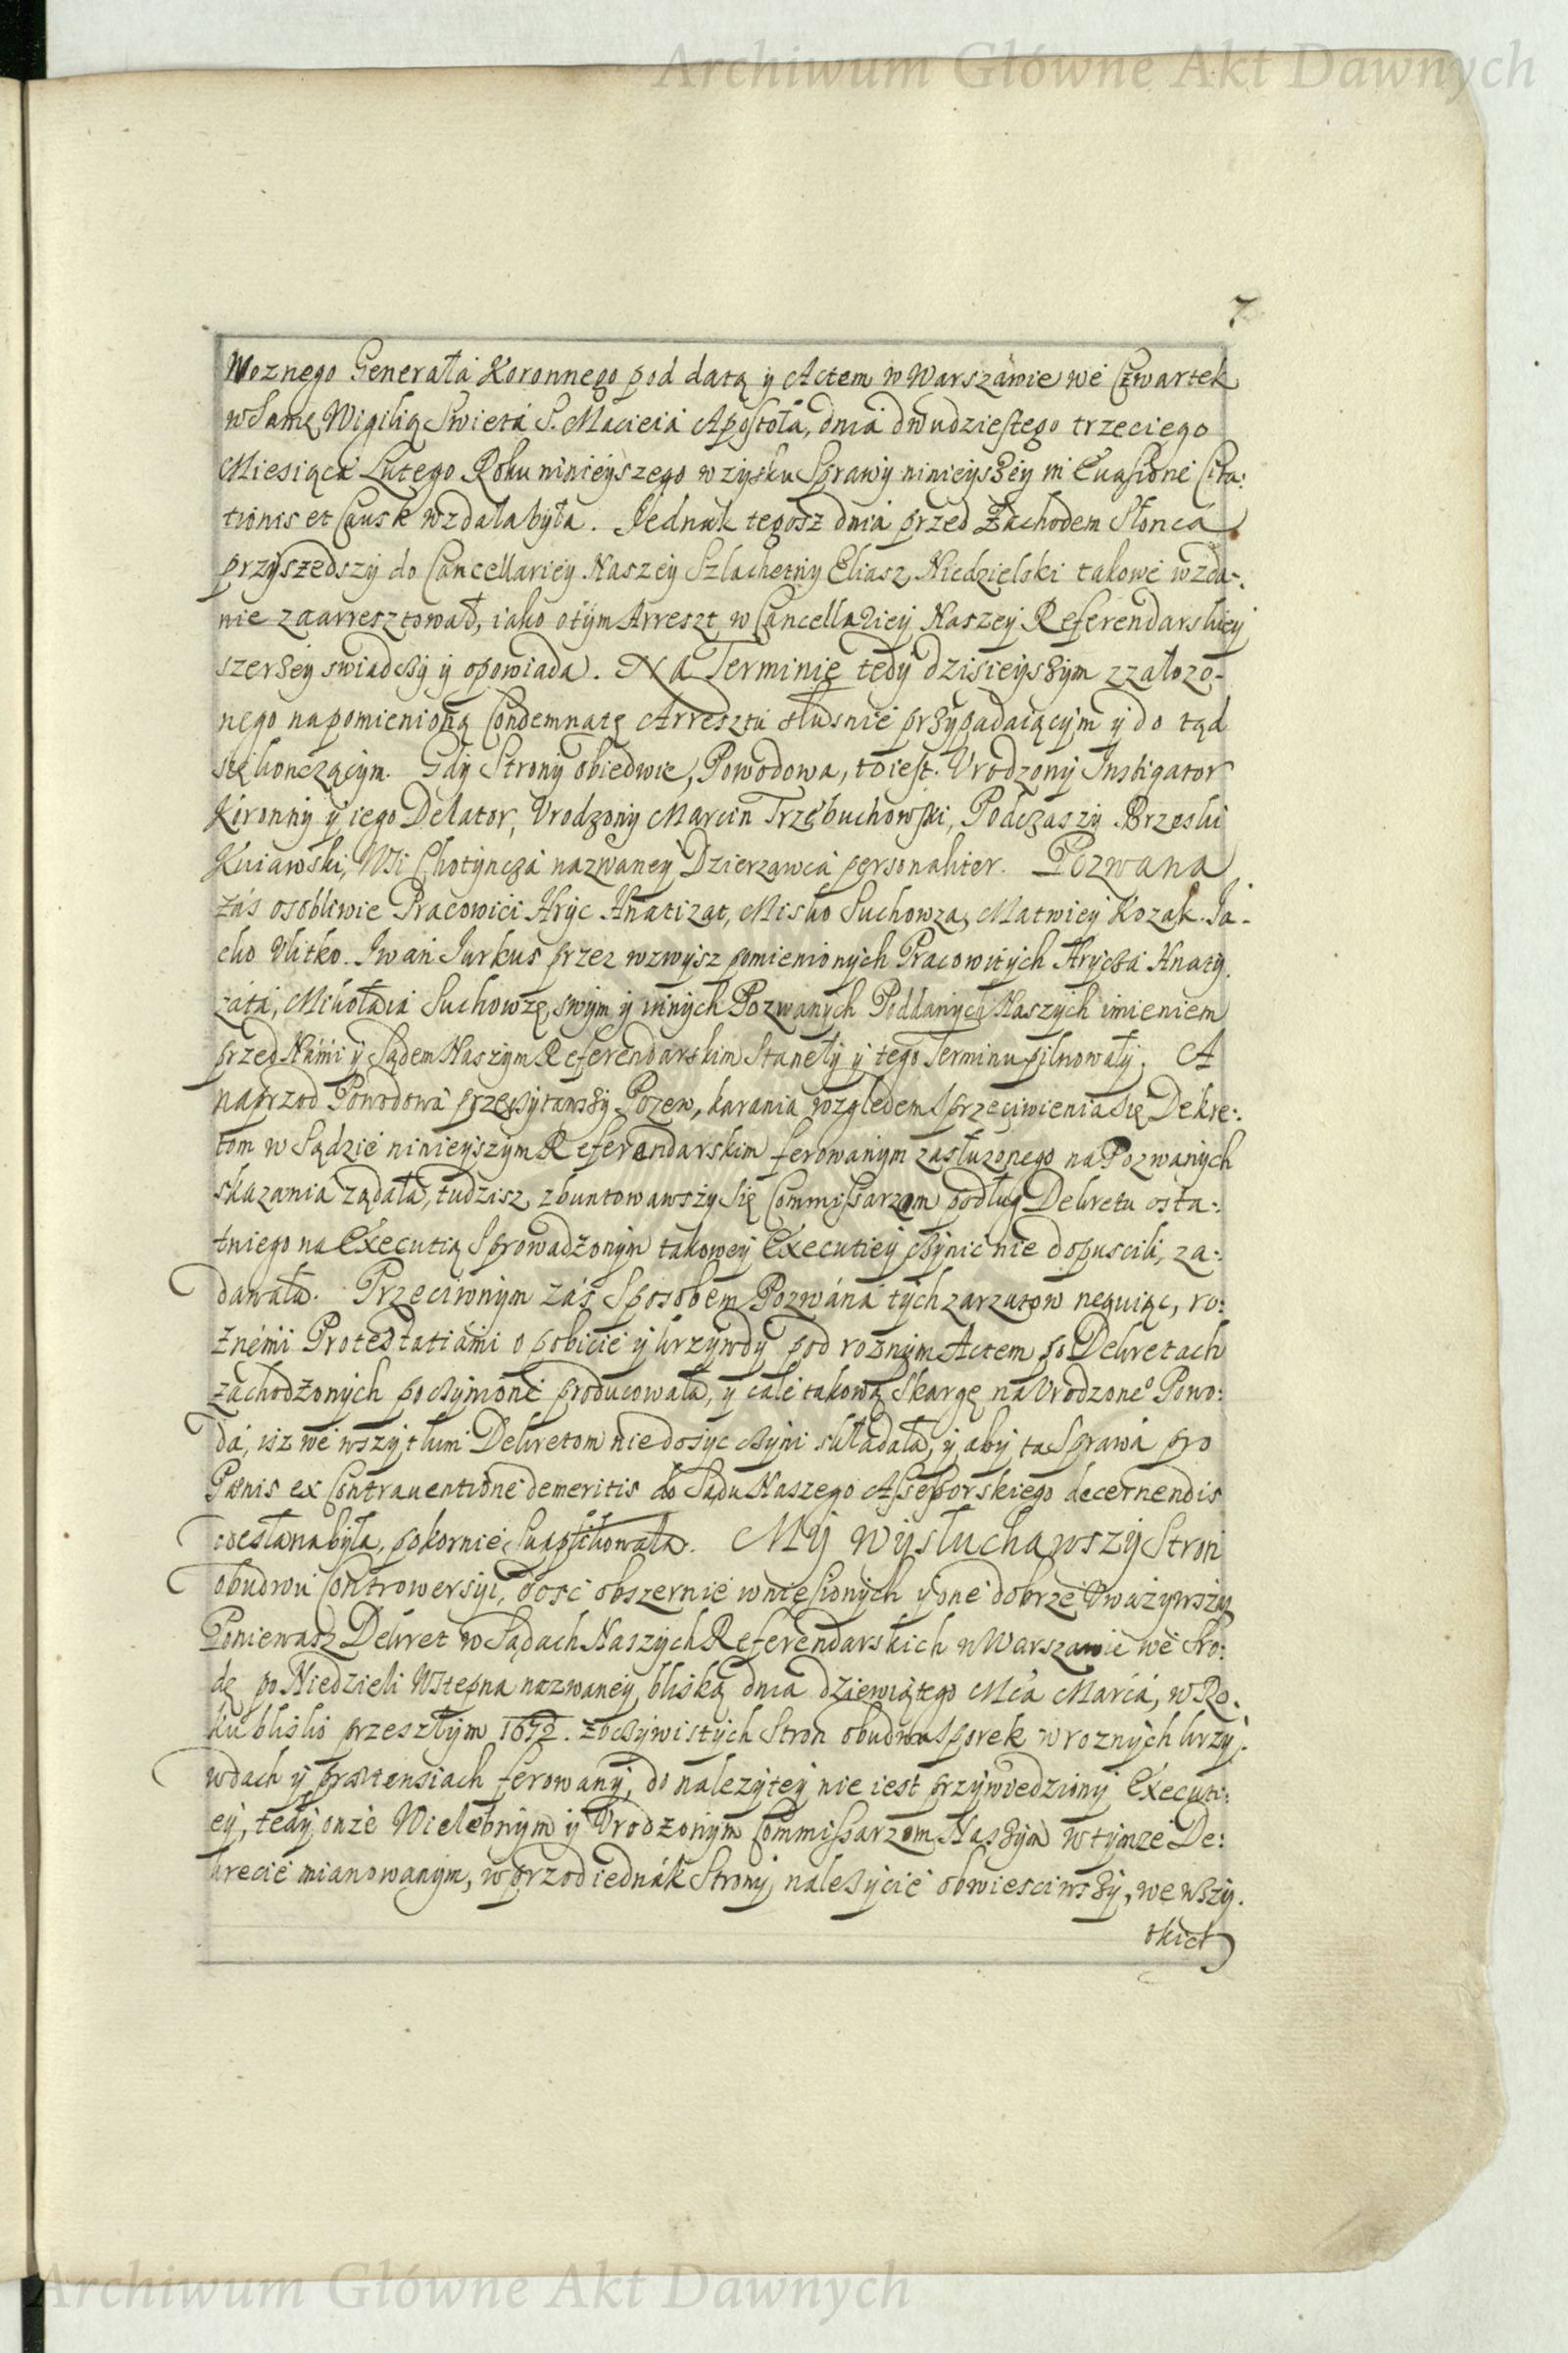 Archiwum Główne Akt Dawnych
7
Woznego Generała Koronnego pod datą y Actem w Warszáwie wé Czwartek
w Samę Wigilią Swięta S. Macieia Apostoła, dnia dwudziestego trzeciego
Miesiąca Lutego Roku ninieyszego w zysku Sprawy ninieyszey in Euasione Cita:
tionis et Causæ wzdała była. Jednak tegosz dnia przed Zachodem Słonca
przyszedszy do Cancellariey Naszey Szlachetny Eliasz Niedzielski takowe wzda-:
nie zaarresztował, iako o tym Arreszt w Cancellariey Naszey Referendarskiey
szerzey swiadczy y opowiada. Na Terminie tedy dzisieyszym z założo-
nego na pomienioną Condemnatę Aresztu słusnie przypadaiącym y do tąd
się konczącym. Gdy Strony obiedwie, Powodowa, to iest. Vrodzony Instigator
Koronny y iego Delator, Vrodzony Marcin Trzebuchowski, Podczaszy Brzeski
Kuiawski, Wsi Chotyncza nazwaney Dzierzawca personaliter. Pozwana
zás osobliwie Pracowici Hryc Hnatizat, Misko Suchowza, Matwiey Kozak. Ja-
cko Vlitko. Iwan Jurkus przez wzwysz pomienionych Pracowitych Hrycza Hnaty
zata, Mikołaia Suchowzę, swym y innych Pozwanych Poddanych Naszych imieniem
przed Nami y Sądem Naszym Referendarskim Stanęły y tego Terminu pilnowały. A
naprzod Powodowa przeczytawszy Pozew, karania względem sprzeciwienia się Dekre:
tom w Sądzie ninieyszym Referendarskim ferowanym zasłuzonego na Pozwanych
skazania ządała, tudzisz zbuntowawszy się Commissarzom podług Dekretu osta-:
tniego na Executią Sprowadzonym takowey Executiey czynic nie dopuscili, za-:
dawała. Przeciwnym zás Sposobem Pozwána tych zarzutow neguiąc, ro:
znémi Protestatiami o pobicie y krzywdy pod roznym Actem po Dekretach
zachodzonych poczynione producowała, y całe takową Skargę na Vrodzonego Powo:
da, isz we wszytkim Dekretom nie dosyc czyni składała, y aby ta Sprawa pro
Pænis ex Contrauentione demeritis do Sądu Naszego Assessorskiego decernendis
odesłana była, pokornie Supplikowała. My wysłuchawszy Stron
obudwu Controwersyi, dość obszernie wniesionych y one dobrze Vwazywszy
Poniewasz Dekret w Sądach Naszych Referendarskich w Warszawie wé Sro:
dę po Niedzieli Wstępna nazwaney bliską dnia dziewiątego Mca Marca, w Ro-
ku blisko przeszłym 1672. z oczywistych Stron obudwu sporek w roznych krzy:
wdach y prætensiach ferowany, do nalezytey nie iest przywiedziony Executi:
ey, tedy onze Wielebnym y Vrodzonym Commissarzom Naszym w tymze De:
krecie mianowanym, w przod iednák Strony nalezycie obwiesciwszy, we wszy.
tkich
Archiwum Główne Akt Dawnych